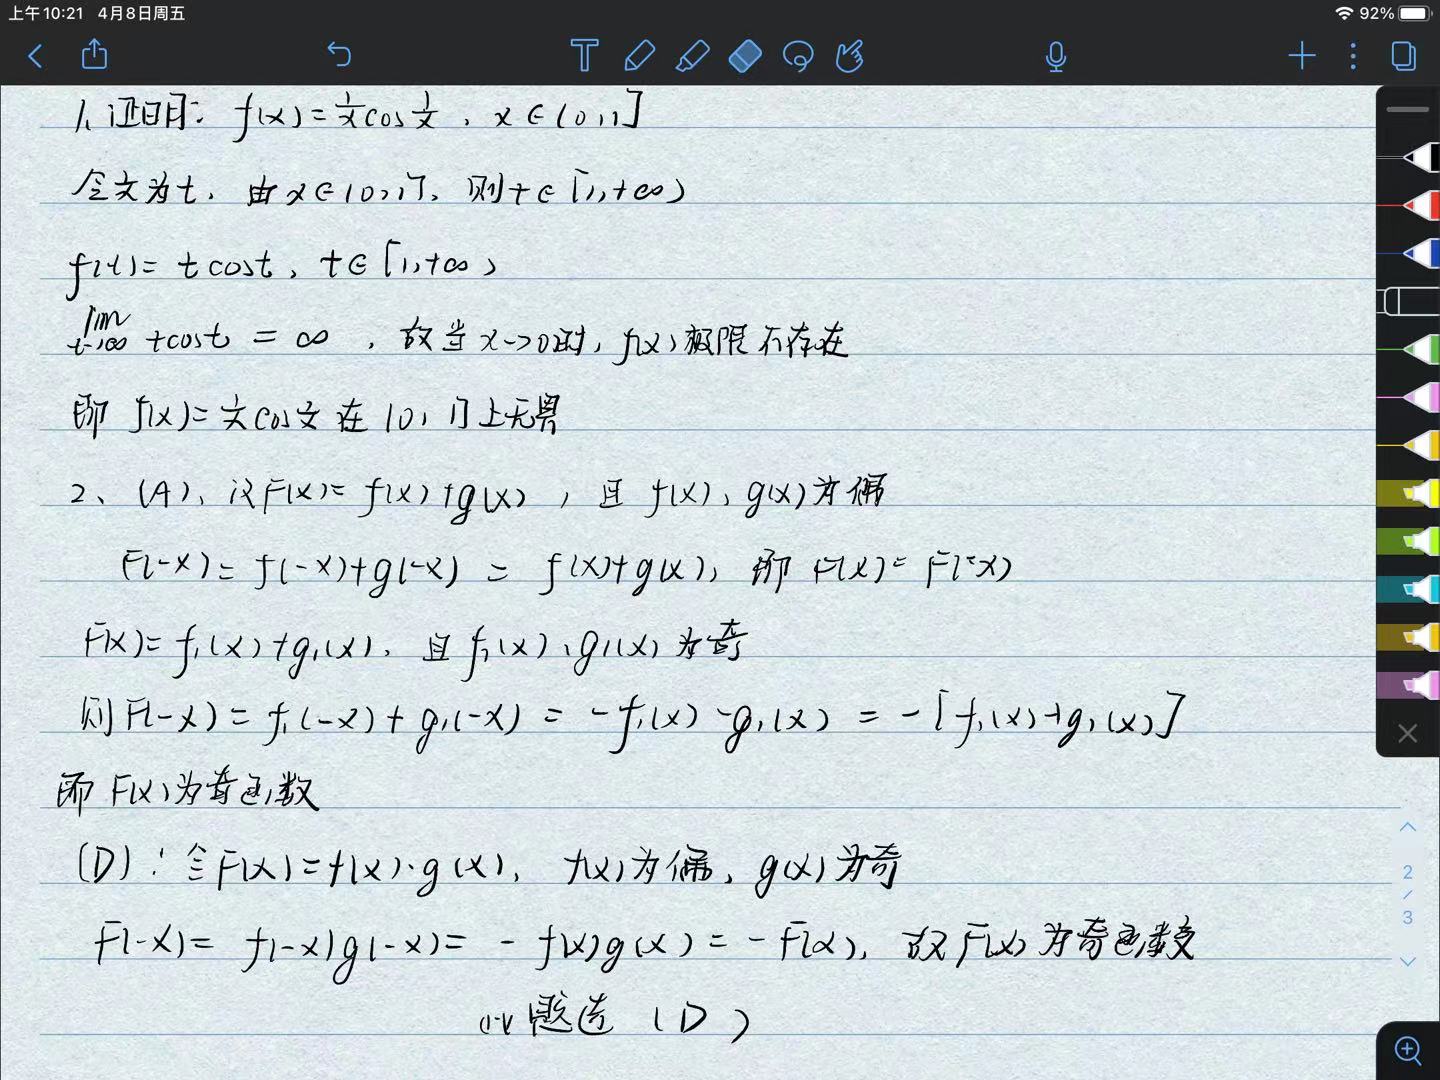 上午10:21 4月8日周五
92%
1、证明: f(x)=1/x cos 1/x , x∈(0,1]
令1/x为t, 由x∈(0,1], 则t∈[1,+∞)
f(t)= tcost, t∈[1,+∞)
lim t→∞ tcost = ∞ , 故当x→0时, f(x)极限不存在
即 f(x)=1/x cos 1/x 在(0,1]上无界
2、(A)、设F(x)= f(x)+g(x) , 且 f(x)、g(x)为偶
F(-x)= f(-x)+g(-x) = f(x)+g(x), 即 F(x)= F(-x)
F(x)= f₁(x)+g₁(x), 且 f₁(x)、g₁(x)为奇
则F(-x)= f₁(-x)+ g₁(-x) = -f₁(x)-g₁(x) = -[f₁(x)+g₁(x)]
即 F(x)为奇函数
(D): 令F(x)=f(x)·g(x), f(x)为偶, g(x)为奇
F(-x)= f(-x)g(-x)= - f(x)g(x) = -F(x), 故F(x)为奇函数
题选 (D)
2
/
3